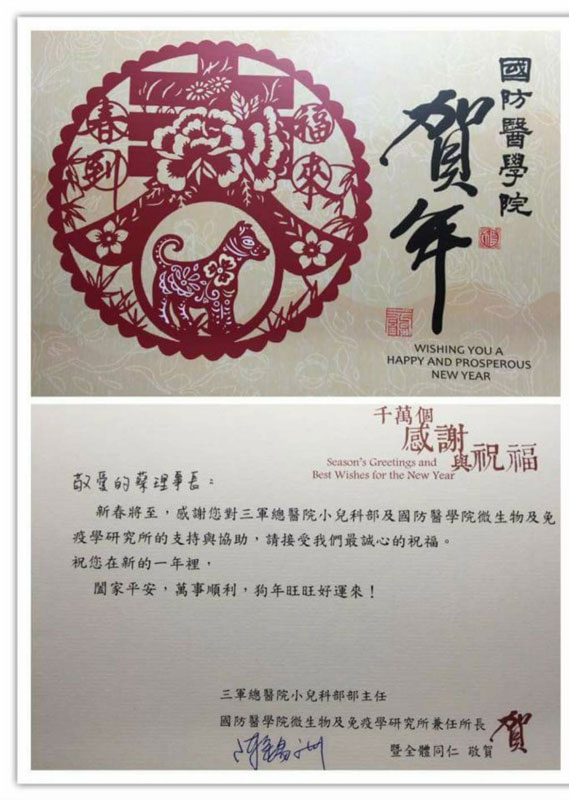 國防醫學院
賀年
春到
福來
WISHING YOU A
HAPPY AND PROSPEROUS
NEW YEAR
千萬個
感謝
與祝福
Season's Greetings and
Best Wishes for the New Year
敬愛的蘇理事長：
新春將至，感謝您對三軍總醫院小兒科部及國防醫學院微生物及免
疫學研究所的支持與協助，請接受我們最誠心的祝福。
祝您在新的一年裡，
闔家平安，萬事順利，狗年旺旺好運來！
三軍總醫院小兒科部部主任
國防醫學院微生物及免疫學研究所兼任所長
暨全體同仁 敬賀
賀